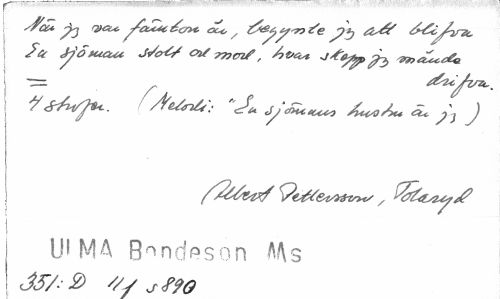 När jg var fämton år, begynte jg att blifva
En sjöman stolt od mod, hvar skepp jg månde
drifva.
=
4 strofer. (Melodi: "En sjömans hustru är jg)
Albert Pettersson, Tolaryd
ULMA Bondeson Ms
351:D 11f s 890